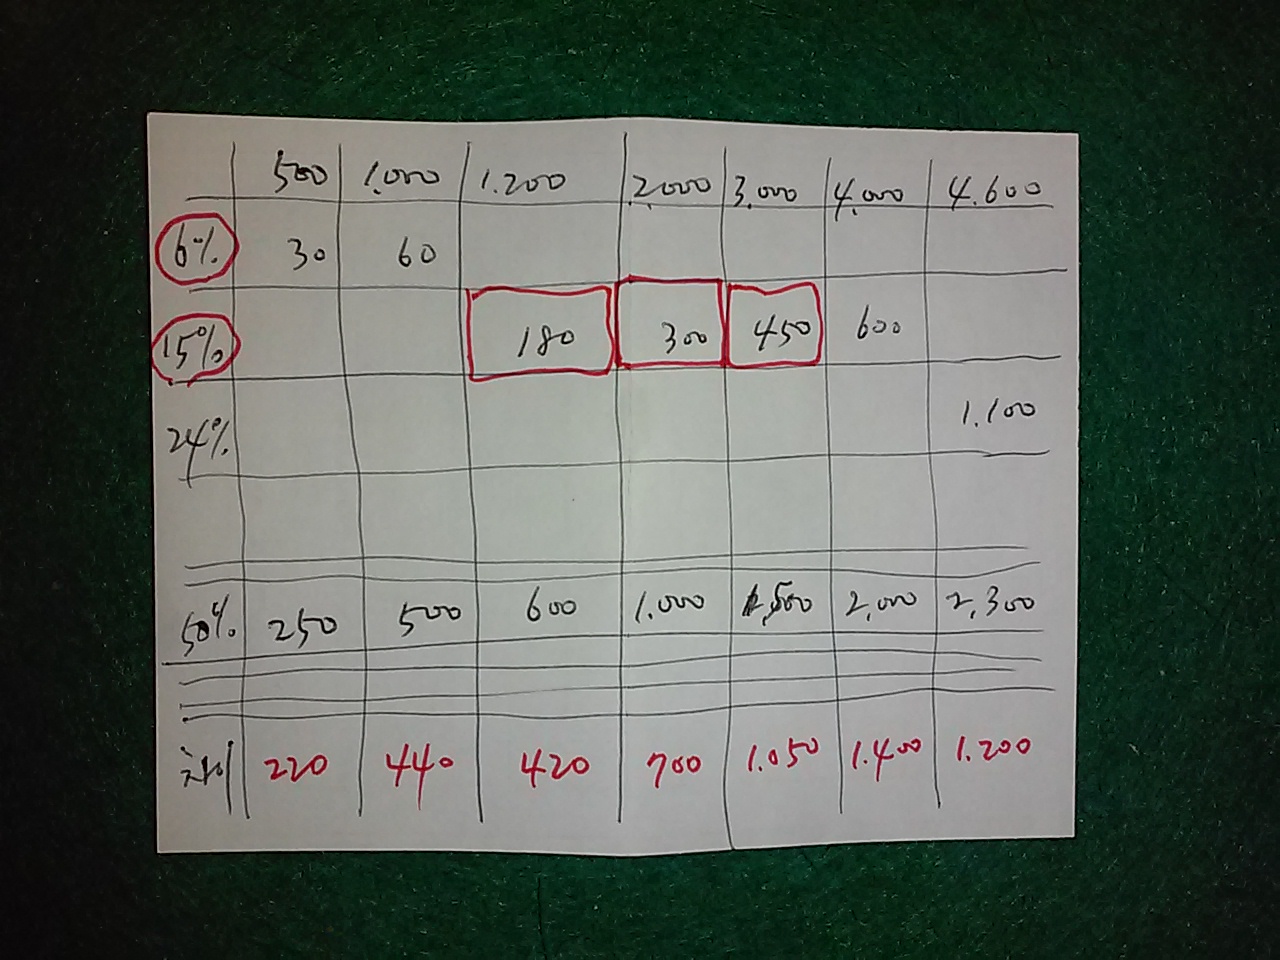 500 1.000 1.200 2.000 3.000 4.000 4.600
6% 30 60
15% 180 300 450 600
24% 1.100
50% 250 500 600 1.000 1,500 2,000 2,300
차이 220 440 420 700 1.050 1.400 1.200